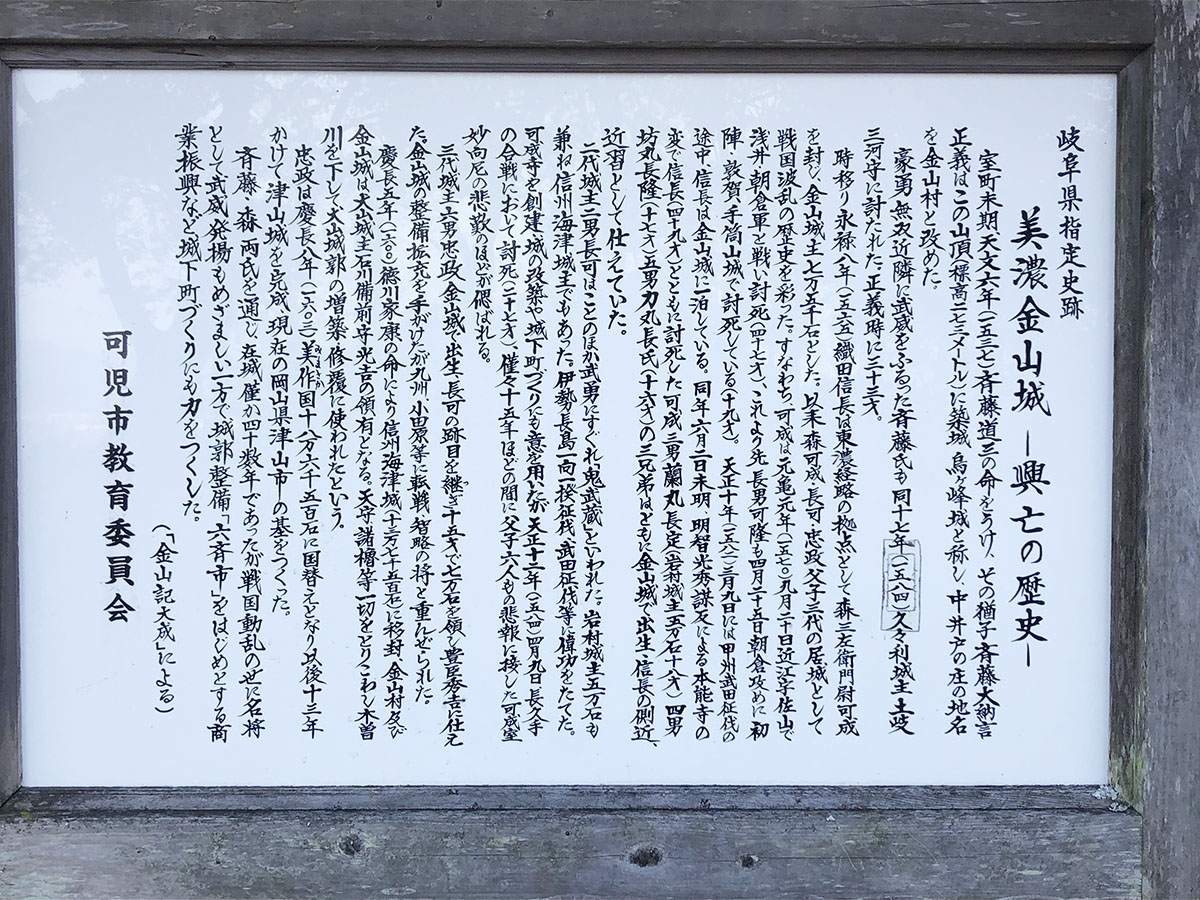 岐阜県指定史跡
美濃金山城 ―興亡の歴史―
室町末期天文六年(一五三七)斉藤道三の命をうけ、その猶子・斉藤大納言
正義はこの山頂(標高二七三メートル)に築城、烏ヶ峰城と称し、中井戸の庄の地名
を金山村と改めた。
豪勇無双近隣に武威をふるった斉藤氏も同十七年(一五八四)久々利城主・土岐
三河守に討たれた。正義時に三十三才。
時移り永禄八年(一五六五)織田信長は東濃経略の拠点として森三左衛門尉可成
を封じ、金山城主七万五千石とした。以来森可成・長可・忠政父子三代の居城として
戦国波乱の歴史を彩った。すなわち、可成は元亀元年(一五七〇)九月二十日近江宇佐山で
浅井・朝倉軍と戦い討死(四十七才)、これより先、長男可隆も四月二十五日朝倉攻めに初
陣・敦賀・手筒山城で討死している(十九才)。天正十年(一五八二)三月九日には甲州武田征伐の
途中、信長は金山城に一泊している。同年六月二日未明、明智光秀謀反による本能寺の
変で信長(四十九才)とともに討死した可成三男蘭丸長定(岩村城主五万石十八才)四男
坊丸長隆(十七才)五男力丸長氏(十六才)の三兄弟はともに金山城で出生・信長の側近、
近習として仕えていた。
二代城主二男長可はことのほか武勇にすぐれ「鬼武蔵」といわれた。岩村城主五万石も
兼ね信州海津城主でもあった。伊勢長島一向一揆征伐、武田征伐等に偉功をたてた。
可成寺を創建、城の改築や城下町づくりにも意を用いたが天正十二年(一五八四)四月九日長久手
の合戦において討死(二十七才)、僅々十五年ほどの間に父子六人もの悲報に接した可成室
妙向尼の悲歎のほどが偲ばれる。
三代城主六男忠政金山城で出生、長可の跡目を継ぎ十五才で七万石を領し豊臣秀吉に仕え
た。金山城の整備拡充を手がけたが九州、小田原等に転戦、智略の将と重んぜられた。
慶長五年(一六〇〇)徳川家康の命により信州海津城(十三万七千五百石)に移封、金山村及び
金山城は犬山城主石川備前守光吉の領有となる。天守、諸櫓等一切をとりこわし木曽
川を下して犬山城郭の増築・修覆に使われたという。
忠政は慶長八年(一六〇三)美作国十八万六千五百石に国替えとなり以後十三年
かけて津山城を完成、現在の岡山県津山市の基をつくった。
斉藤・森両氏を通じ、在城僅か四十数年であったが戦国動乱の世に名将
として武威発揚もめざましい一方で城郭整備「六斉市」をはじめとする商
業振興など城下町づくりにも力をつくした。
(「金山記大成」による)
可児市教育委員会